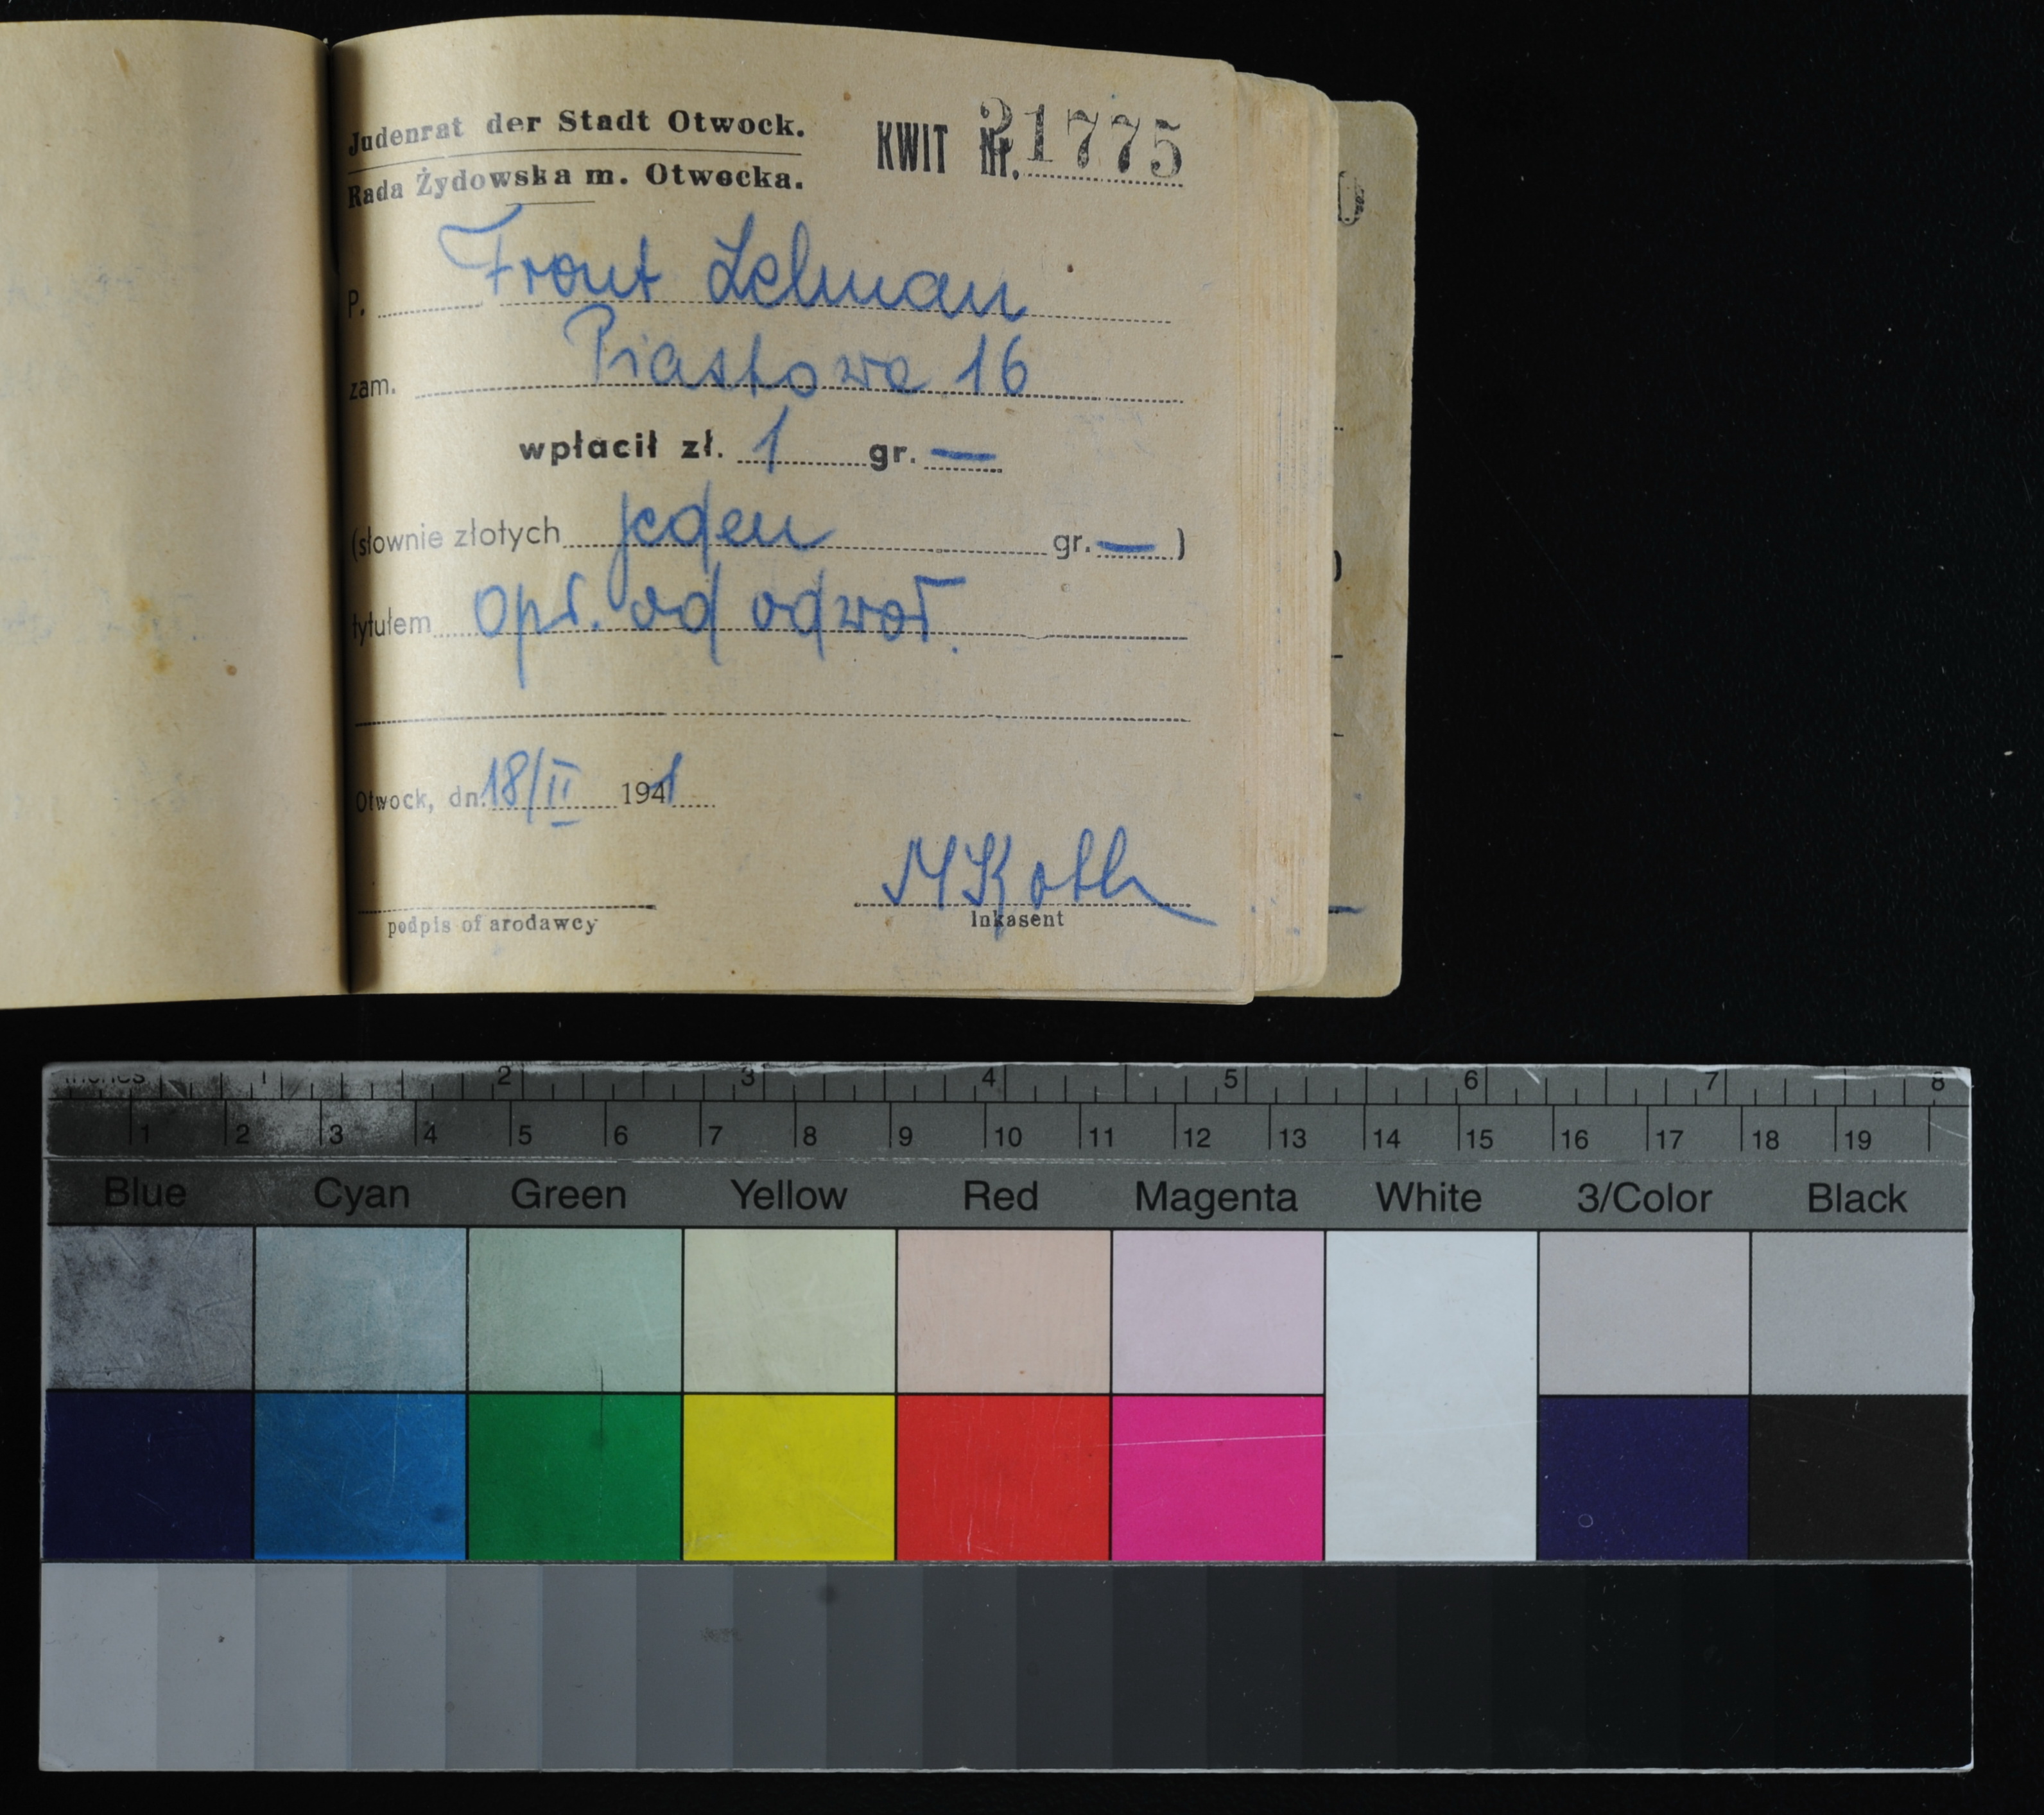 Judenrat der Stadt Otwock.
Rada Żydowska m. Otwocka.
KWIT Nr. 21775
P. Front Lelman
zam. Piastowa 16
wpłacił zł. 1 gr. —
(słownie złotych jeden gr. — )
tytułem opł. od odwoł.
Otwock, dn. 18/II 1941
MKoth
podpis of arodawcy
Inkasent
inches 1 2 3 4 5 6 7 8
1 2 3 4 5 6 7 8 9 10 11 12 13 14 15 16 17 18 19
Blue Cyan Green Yellow Red Magenta White 3/Color Black